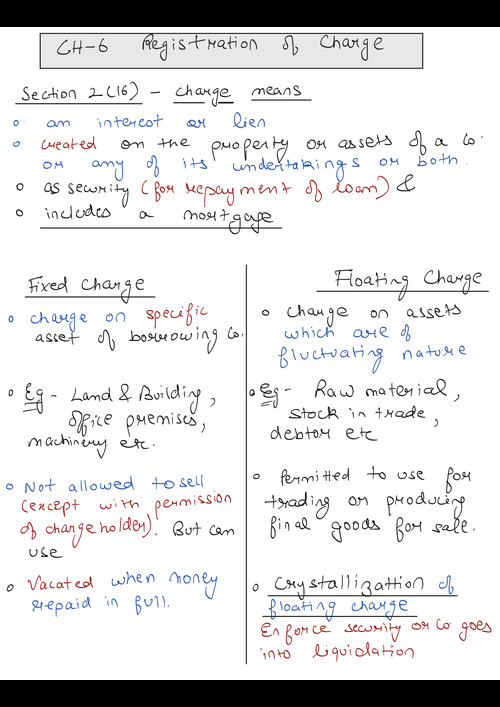 CH-6 Registration of Charge
Section 2(16) - charge means
an interest or lien
created on the property or assets of a co.
or any of its undertakings or both.
as security (for repayment of loan) &
includes a mortgage
Fixed Charge
charge on specific
asset of borrowing co.
Eg - Land & Building,
office premises,
machinery etc.
Not allowed to sell
(except with permission
of charge holder). But can
use
Vacated when money
repaid in full.
Floating Charge
charge on assets
which are of
fluctuating nature
Eg - Raw material,
stock in trade,
debtor etc
Permitted to use for
trading or producing
final goods for sale.
Crystallizattion of
floating charge
Enforce security or co goes
into liquidation